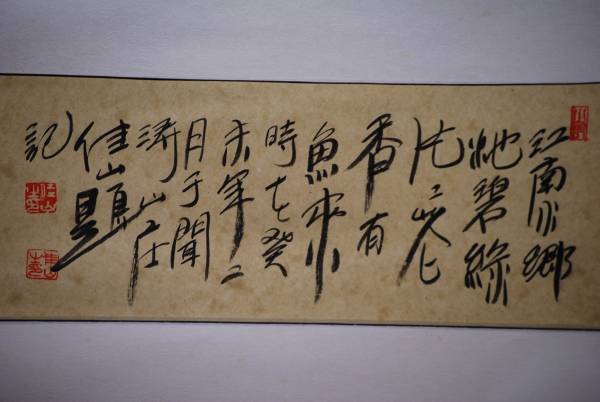 江南水鄉
池碧綠
片〻花
香有
魚來
時在癸
未年二
月于聞
濤山庄
佳山題
記